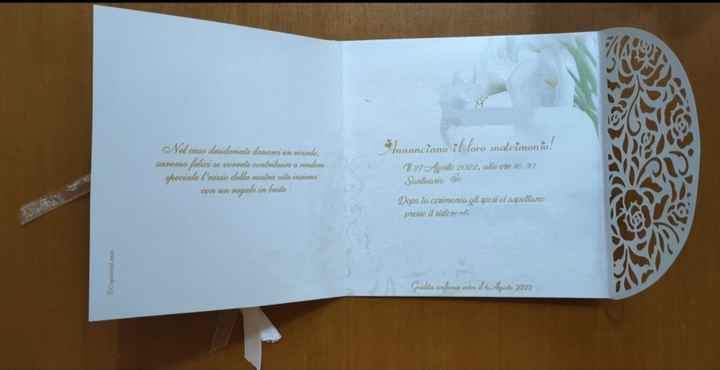 Nel caso desideriate donarci un ricordo,
saremo felici se vorrete contribuire a rendere
speciale l'inizio della nostra vita insieme
con un regalo in busta
Annunciano il loro matrimonio!
Il 27 Agosto 2022, alle ore 16.30
Santuario
Dopo la cerimonia gli sposi vi aspettano
presso il ristor
Gradita conferma entro il 6 Agosto 2022